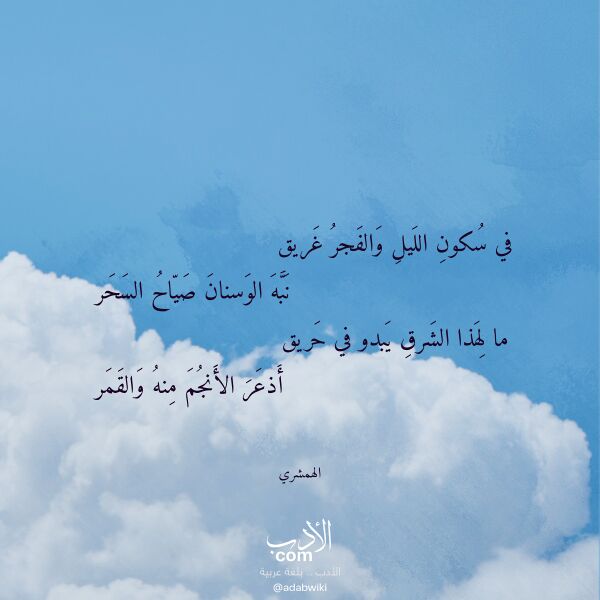 في سُكونِ اللَيلِ وَالفَجرُ غَريق
نَبَّهَ الوَسنانَ صَيّاحُ السَحَر
ما لِهَذا الشَرقِ يَبدو في حَريق
أَذعَرَ الأَنجُمَ مِنهُ وَالقَمَر
الهمشري
الأدب
.com
الأدب .. بلغة عربية
@adabwiki